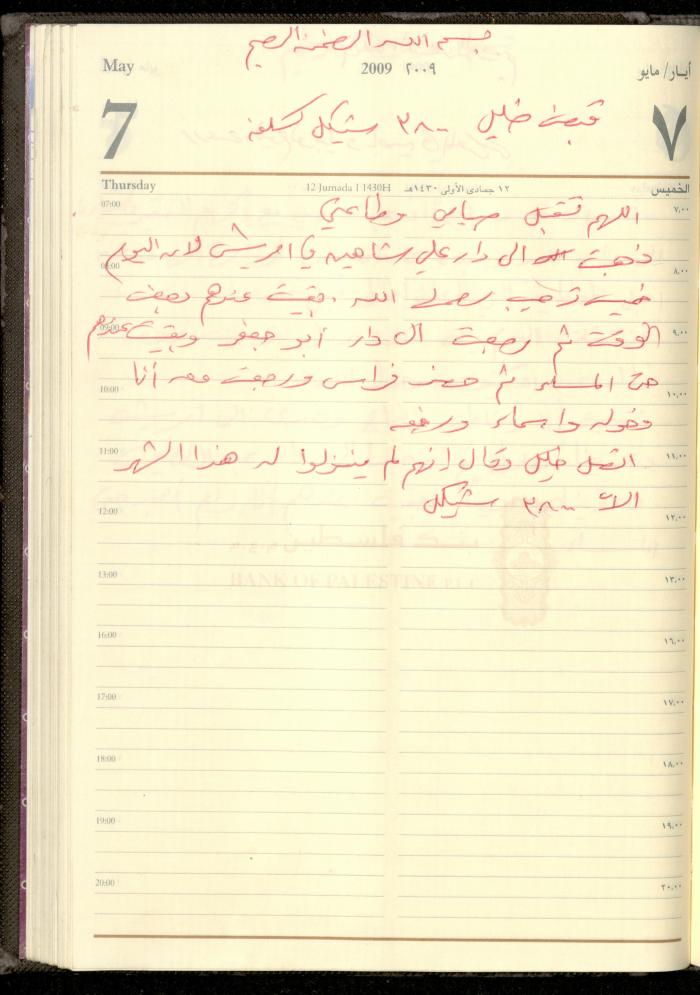 بسم الله الرحمن الرحيم
May 2009 ٢٠٠٩ أيار/ مايو
7 ٧
قبضت خليل ٣٨٠٠ شيكل كسلفه
Thursday 12 Jumada I 1430H ١٢ جمادى الأولى ١٤٣٠هـ الخميس
07:00 ٧,٠٠
اللهم تقبل صيامي وطاعتي
ذهبت الى دار علي شاهين في امريش لانه اليوم
08:00 ٨,٠٠
خميس رحمه الله . بقيت عندهم بعض
09:00 ٩,٠٠
الوقت ثم رجعت الى دار أبو جعفر وبقيت عندهم
حتى المساء ثم حضر فراس ورجعت معه أنا
10:00 ١٠,٠٠
وخوله واسماء ورفعه
11:00 ١١,٠٠
اتصل خليل وقال إنهم لم ينزلوا له هذا الشهر
الا ٣٨٠٠ شيكل
12:00 ١٢,٠٠
BANK OF PALESTINE
13:00 ١٣,٠٠
16:00 ١٦,٠٠
17:00 ١٧,٠٠
18:00 ١٨,٠٠
19:00 ١٩,٠٠
20:00 ٢٠,٠٠